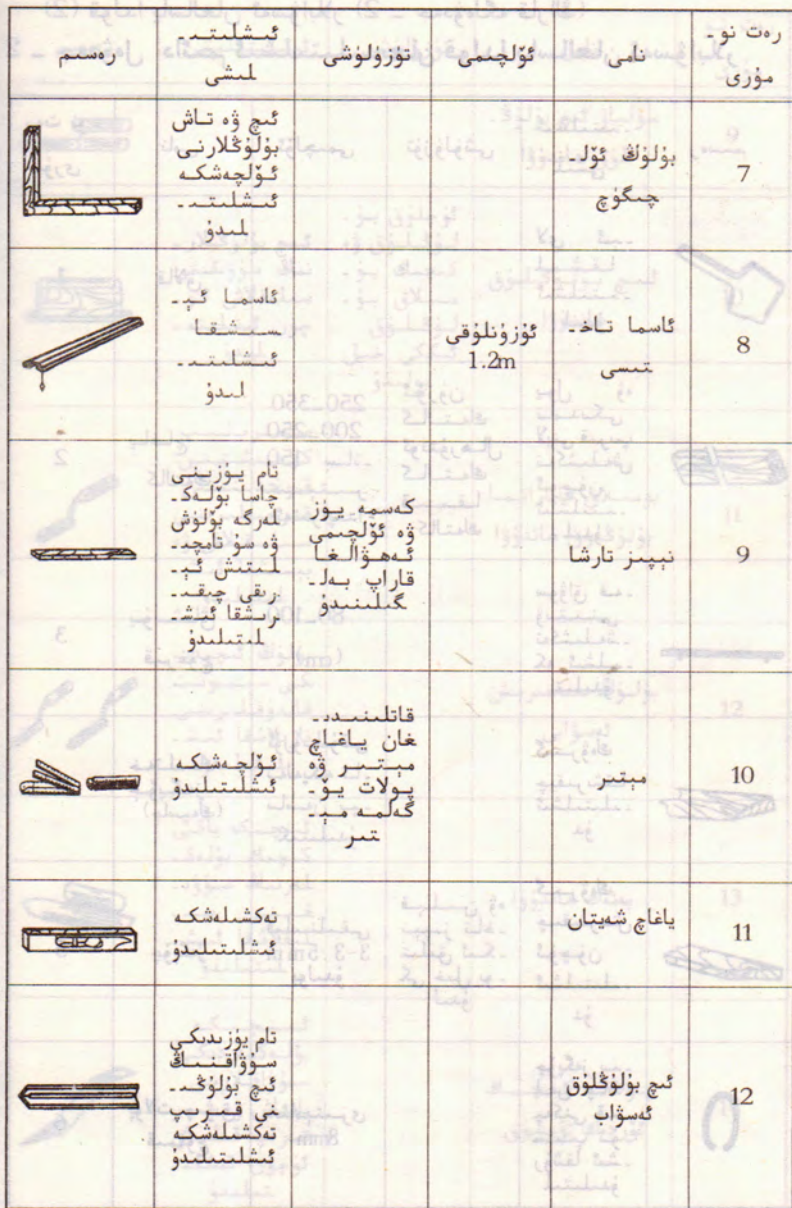 رەت نو-
مۇرى
نامى
ئۆلچىمى
تۈزۈلۈشى
ئىشلىتى-
لىشى
رەسىم
7
بۇلۇڭ ئۆل-
چىگۈچ
ئىچ ۋە تاش
بۇلۇڭلارنى
ئۆلچەشكە
ئىشلىتى-
لىدۇ
8
ئاسما تاخ-
تىسى
ئۇزۇنلۇقى
1.2m
ئاسما ئې-
سىشقا
ئىشلىتى-
لىدۇ
9
نېپىز تارشا
كەسمە يۈز
ۋە ئۆلچىمى
ئەھۋالغا
قاراپ بەل-
گىلىنىدۇ
تام يۈزىنى
چاسا بۆلەك-
لەرگە بۆلۈش
ۋە سۇ تامچى-
لىتىش ئې-
رىقى چىقى-
رىشقا ئىش-
لىتىلىدۇ
10
مېتىر
قاتلىنىدى-
غان ياغاچ
مېتىر ۋە
پولات يۆ-
گەلمە مې-
تىر
ئۆلچەشكە
ئىشلىتىلىدۇ
11
ياغاچ شەيتان
تەكشىلەشكە
ئىشلىتىلىدۇ
12
ئىچ بۇلۇڭلۇق
ئەسۋاب
تام يۈزىدىكى
سۇۋاقنىڭ
ئىچ بۇلۇڭى-
نى قىرىپ
تەكشىلەشكە
ئىشلىتىلىدۇ